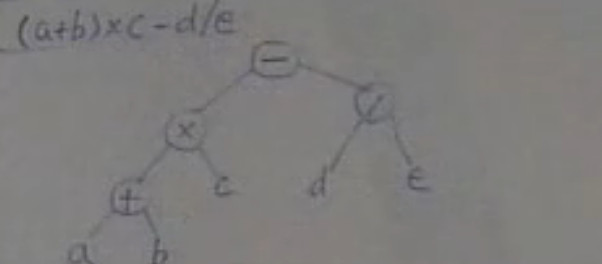 (a+b)×c-d/e
-
× /
+ c d e
a b